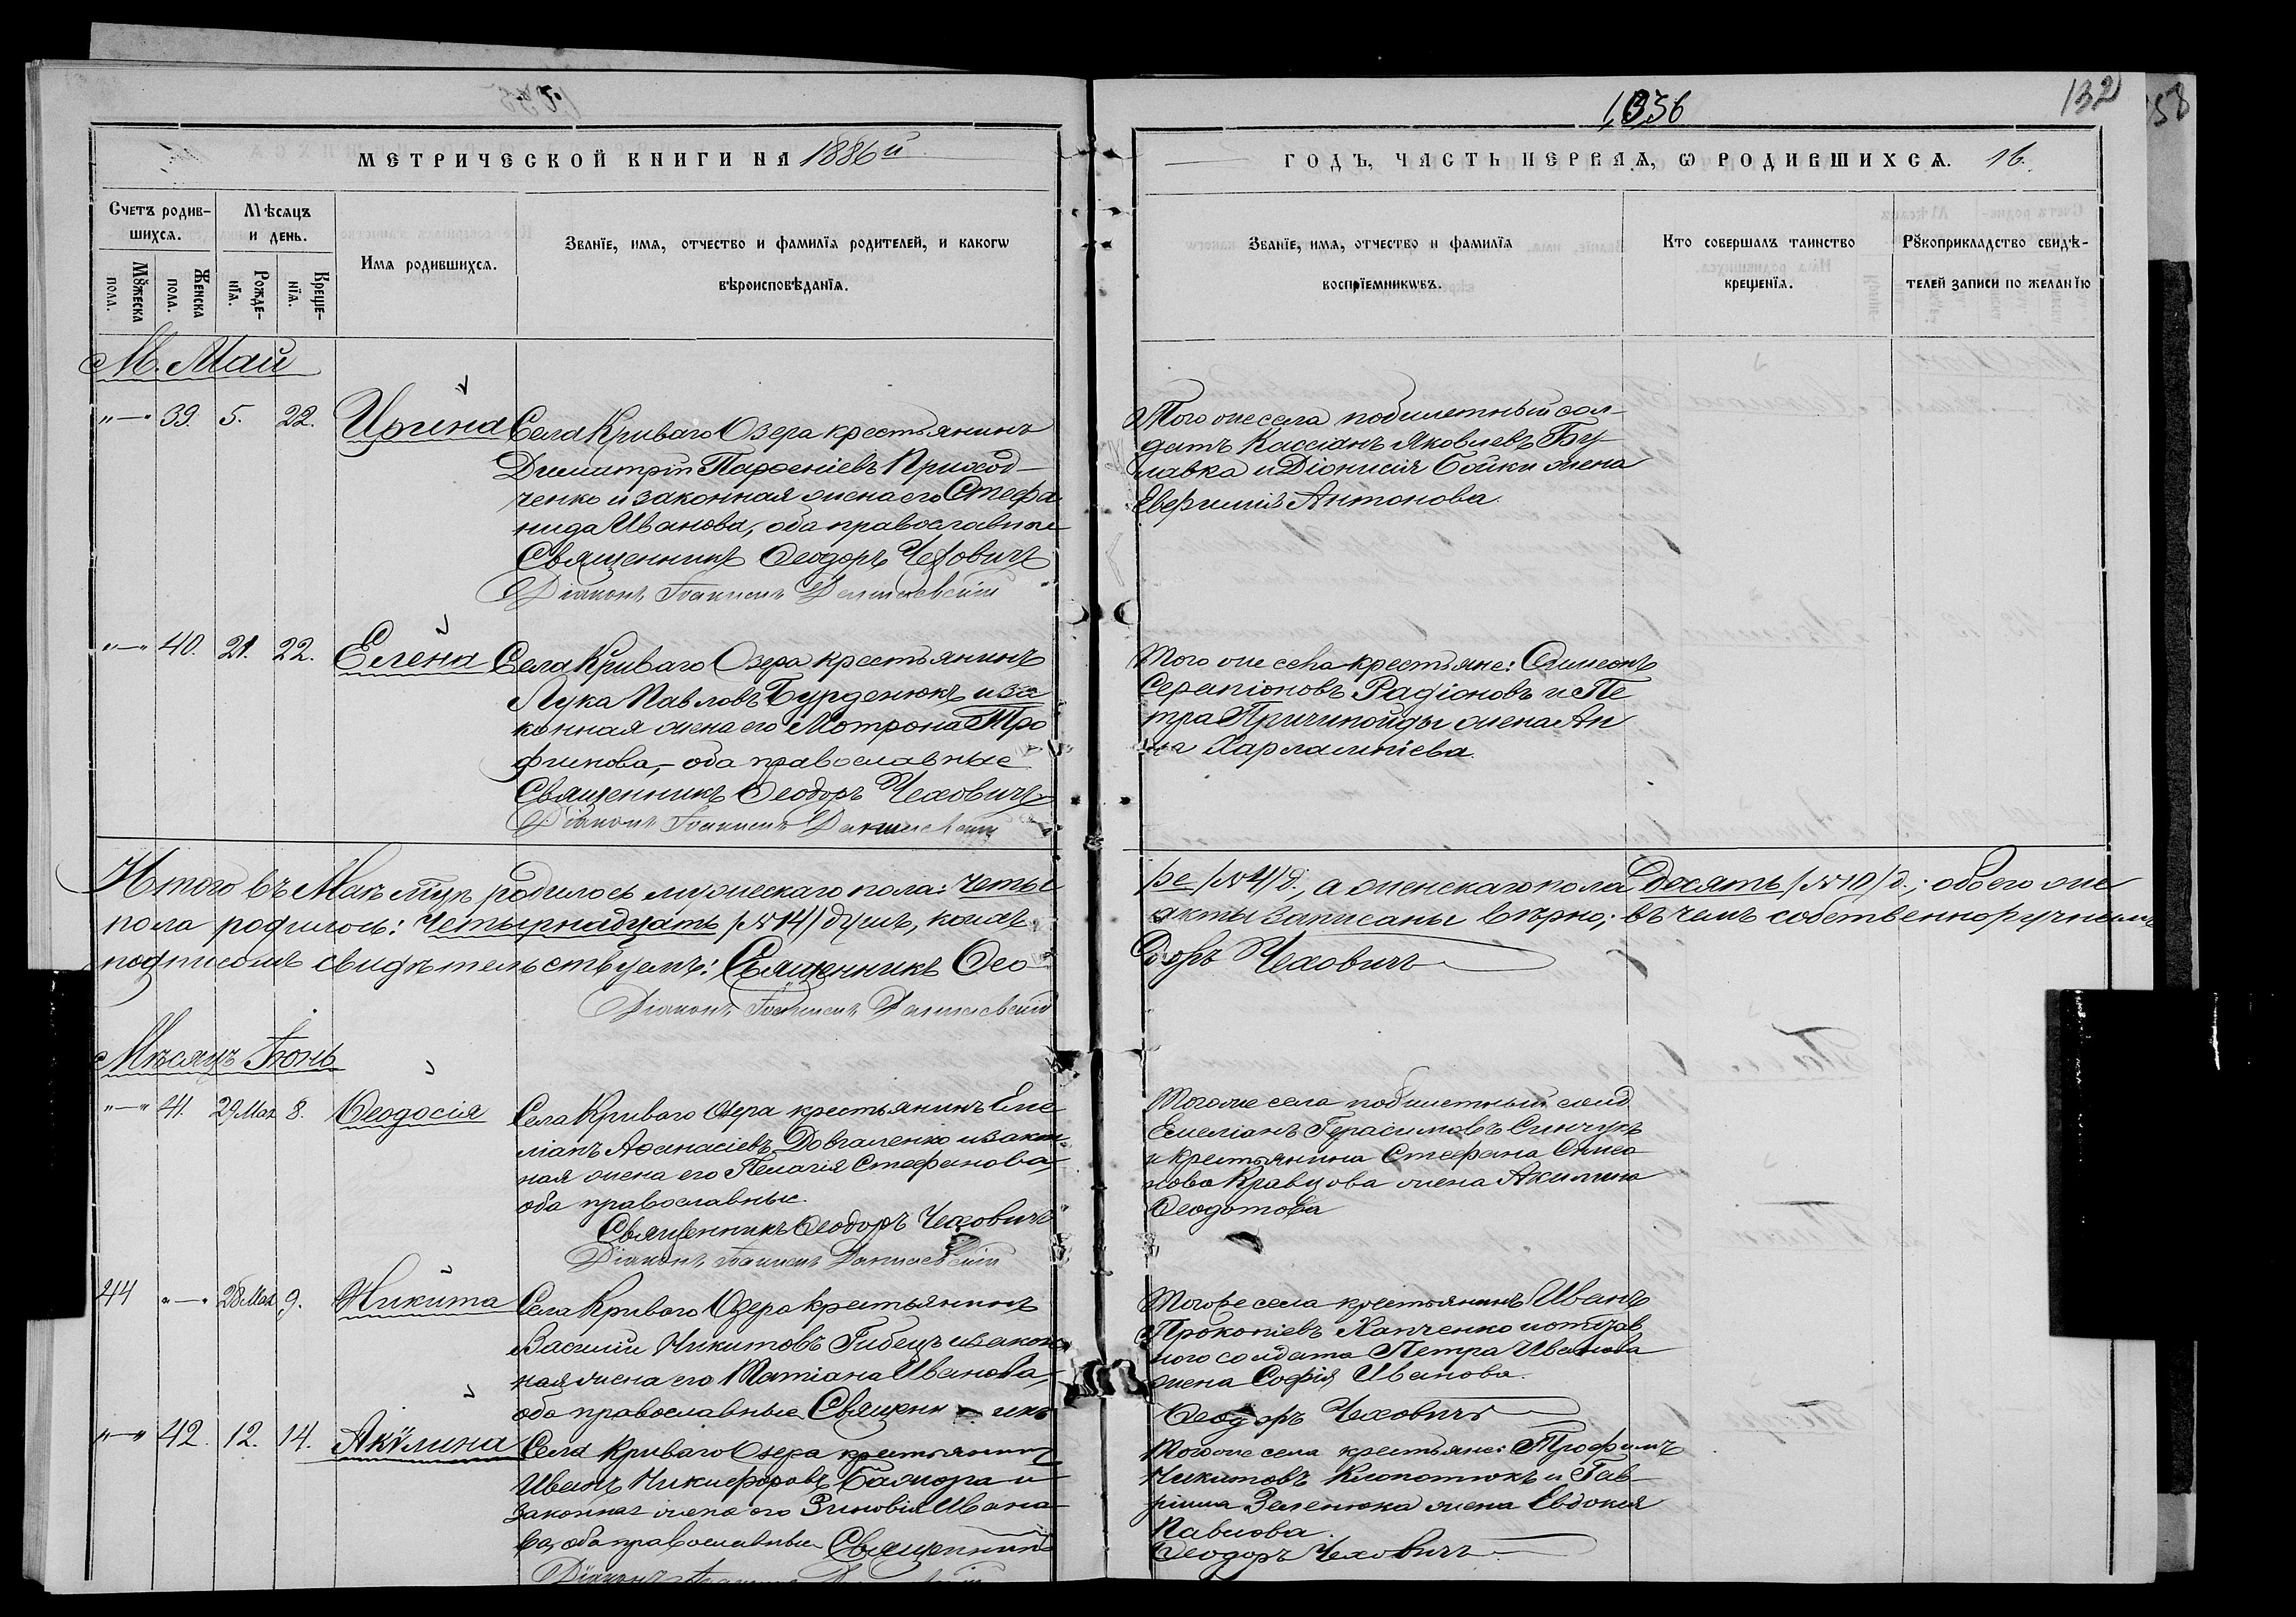 1,056
132
158
МЕТРИЧЕСКОЙ КНИГИ НА 1886й
ГОДЪ, ЧАСТЬ ПЕРВАЯ, Ѡ РОДИВШИХСЯ. 16.
Счетъ родив-
шихся.
Мѣсяцъ
и день.
Имя родившихся.
Званїе, имя, отчество и фамилїя родителей, и какогѡ
вѣроисповѣданїя.
Мꙋжеска
пола.
Женска
пола.
Рожде-
нїя.
Креще-
нїя.
Званїе, имя, отчество и фамилїя
воспрїемникѡвъ.
Кто совершалъ таинство
крещенїя.
Рꙋкоприкладство свидѣ-
телей записи по желанїю
М. Май
"—" 39. 5. 22. Ирина Села Криваго Озера крестьянинъ
Димитрій Парѳеніевъ Приход-
ченко и законная жена его Стефа
нида Иванова, оба православные
Священникъ Ѳеодоръ Чеховичъ
Діаконъ Іоакимъ
Того же села побилетный сол-
датъ Кассіанъ Яковлевъ Бу-
лавка и Діонисія Бойки жена
Евфимія Антонова.
"—" 40. 21. 22. Елена Села Криваго Озера крестьянинъ
Лука Павловъ Бурденюкъ и за
конная жена его Мотрона Тро
фимова, – оба православные
Священникъ Ѳеодоръ Чеховичъ
Діаконъ Іоакимъ
Того же села крестьяне: Симеонъ
Серапіоновъ Радіоновъ и Пе
тра Причинойды жена Ан
на Харлампіева.
Итого въ Маѣ м҃цѣ родилось мужескаго пола: четы
ре /№ 4/ д., а женскаго пола Десять /№ 10/ д.; обоего же
пола родилось: Четырнадцать /№ 14/ душъ, коихъ
акты записаны вѣрно; въ чемъ собственноручнымъ
подписомъ свидѣтельствуемъ: Священникъ Ѳео
доръ Чеховичъ
Діаконъ Іоакимъ
Мѣсяцъ Іюнь
"—" 41. 29 Мая 8. Ѳеодосія Села Криваго Озера крестьянинъ Еме
ліанъ Аѳанасіевъ Довгаленко и закон
ная жена его Пелагія Стефанова,
оба православные.
Священникъ Ѳеодоръ Чеховичъ
Діаконъ Іоакимъ
Того же села побилетный солд.
Емеліанъ Герасимовъ Синчукъ
и крестьянина Стефана
Кравцова жена Акилина
Ѳеодотова
44 "—" 28 Мая 9. Никита Села Криваго Озера крестьянинъ
Василій Никитовъ Гибецъ и закон
ная жена его Татіана Иванова,
оба православные Священникъ
Того же села крестьянинъ Иванъ
Прокопіевъ Ханченко и
ного солдата Петра Иванова
жена Софія Иванова.
Ѳеодоръ Чеховичъ
"—" 42. 12. 14. Акѷлина Села Криваго Озера крестьянинъ
Иванъ Никифоровъ Бамора и
законная жена его Зиновія Ивано
ва, оба православные Священникъ
Діаконъ
Того же села крестьяне: Трофимъ
Никитовъ Клопотюкъ и Гав-
ріила Зеленюка жена Евдокія
Павлова.
Ѳеодоръ Чеховичъ